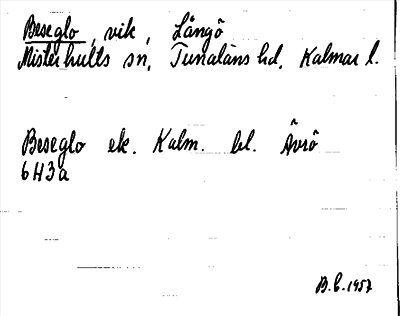 Beseglo, vik, Långö
Misterhults sn, Tunaläns hd, Kalmar l.
Beseglo ek. Kalm. bl. Ävrö
6H3a
B.C. 1957